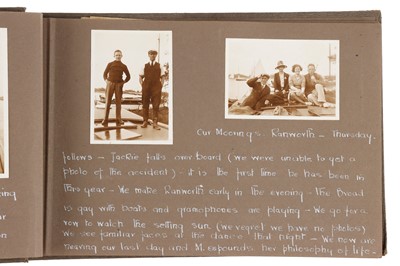 Our Moorings. Ranworth - Thursday.
fellows - Jackie falls overboard (we were unable to get a
photo of the accident) - it is the first time he has been in
this year - We make Ranworth early in the evening - The Broad
is gay with boats and gramophones are playing - We go for a
row to watch the setting sun (we regret we have no photos)
We see familiar faces at the dance that night - We now are
nearing our last day and M. expounds her philosophy of life -